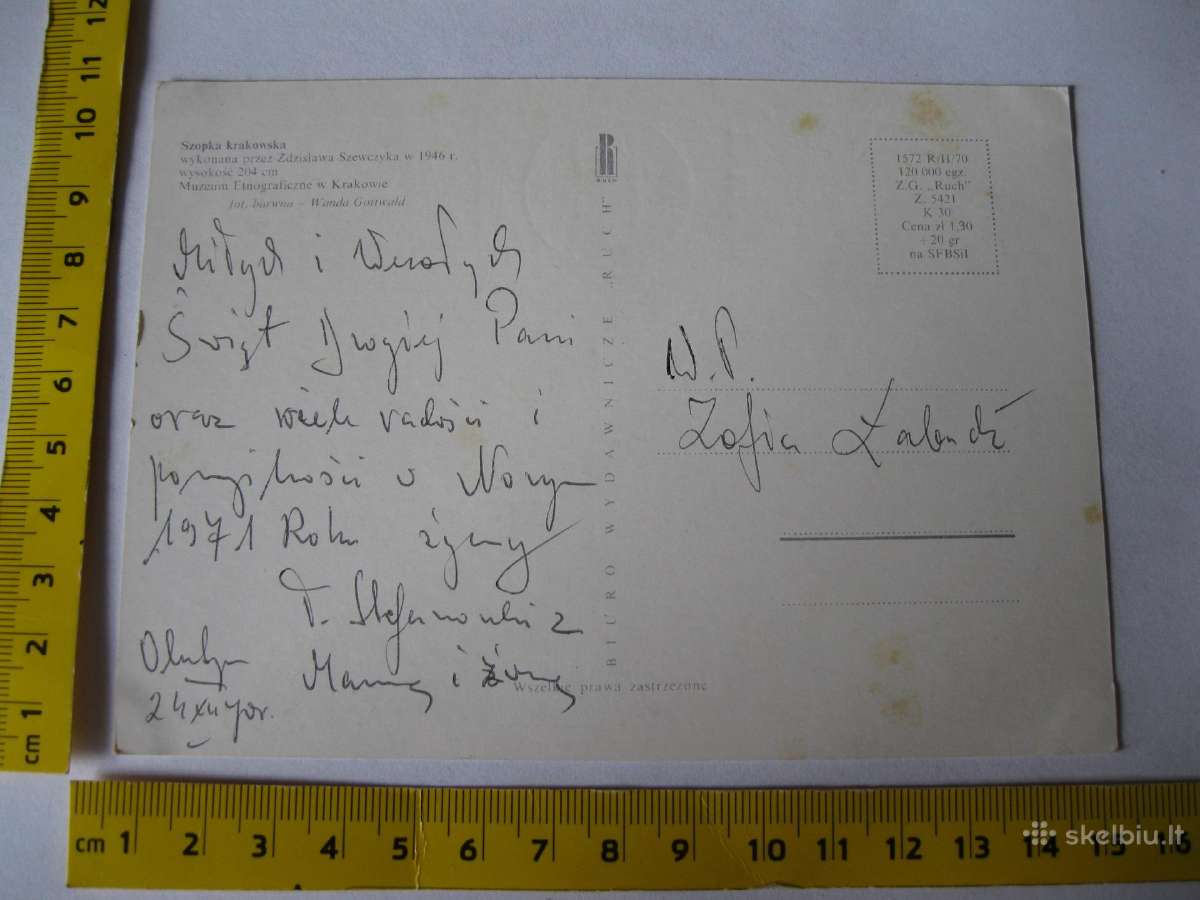 Szopka krakowska
wykonana przez Zdzisława Szewczyka w 1946 r.
wysokość 204 cm
Muzeum Etnograficzne w Krakowie
fot. barwna – Wanda Gottwald
Miłych i Wesołych
Świąt Drogiej Pani
oraz wiele radości i
pomyślności w Nowym
1971 Roku życzy
T. Stefanowski z
Mamą i żoną
Olsztyn
24 XII 70r.
RUCH
BIURO WYDAWNICZE „RUCH”
Wszelkie prawa zastrzeżone
1572 R/II/70
120 000 egz.
Z.G. „Ruch”
Z. 5421
K 30
Cena zł 1,30
+20 gr
na SFBSiI
W.P.
Zofia
cm 1 2 3 4 5 6 7 8 9 10 11 12
cm 1 2 3 4 5 6 7 8 9 10 11 12 13 14 15 16
skelbiu.lt